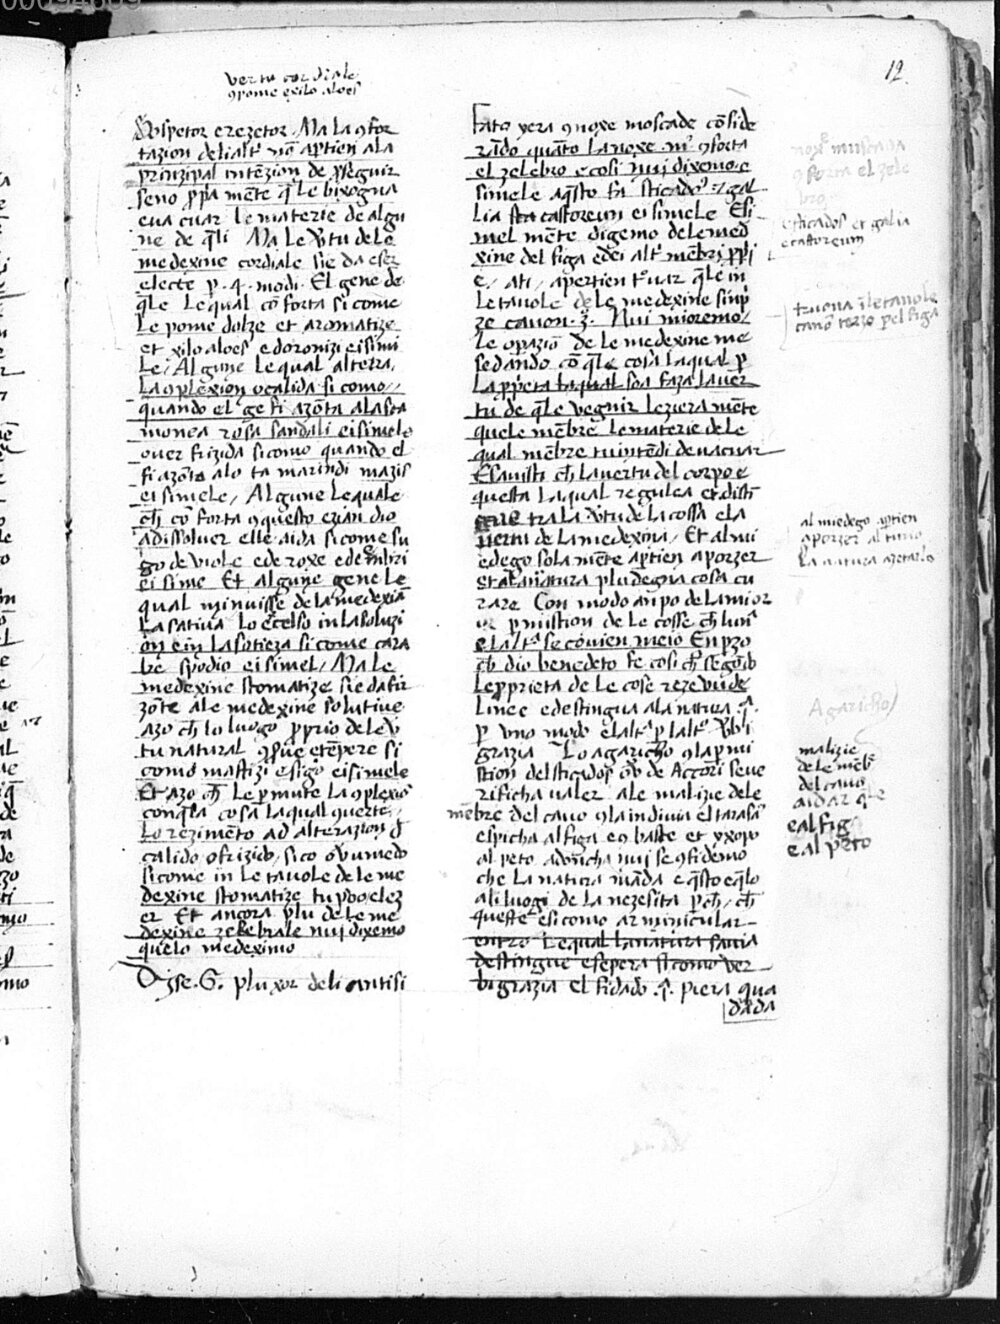 00094609
12
vertu cordiale
9pome exilo aloes
Sospetor e rezetor. Ma la 9for
tazion deli altͥ nō aptien ala
prinzipal intēzion de p̄seguir
seno ppa mēte q̄ le bixogna
euacuar le materie de algu
ne de q̄li Ma le vtu dele
medexine cordiale sie da eser
electe p. 4. modi. El gene de
q̄le Le qual cō forta si come
Le pome dolze et aromatize
et xilo aloes e doronizi ei simi
le / Algune le qual alterra
La 9plexion o calida si como
quando el ge si azōta ala sca
monea rosa sandali ei simele
ouer frizida si como quando el
si azōta alo tamarindi mazis
ei simele / Algune le quale
ch̄ cō forta 9 questo ezian dio
adissoluer elle aida si come su
go de viole e de roxe e de
ei sime. Et algune gene le
qual minuisse de la medexīa
Lasatiua Lo ecelso in la soluzi
on e in la sotieza si come cara
be spodio ei simel / Ma le
medexine stomatize sie da fir
zote ale medexine solutiue
azo ch̄ lo luogo pprio de le v
tu natural 9 sue etēpere si
como mastizi e sigo ei simele
Et azo ch̄ le pmute la 9plexiō
con q̄la cosa la qual querte
Lo rezimēto ad alterazion d
calido o frizido, sico o vmedo
si come in le tauole de le me
dexine stomatize tu poo elez
er Et ancora plu de le me
dexine zelebrale nui dixemo
quelo medeximo
Dise. G. plu xor deli antisi
fato yera 9 noxe moscade cō side
rādo quāto la noxe mͥ 9forta
el zelebro e cosi nui dixemo e
simele aq̄sto fa sticados e gal
lia sta castoreum ei simele Esi
mel mēte digemo dele med
xine del figa e dei altͥ mēbri ppi
e / ati / apertien trouar q̄le in
le tauole de le medexine sinp
ze canon. 3. Nui mioremo
Le opaziō de le medexine me
sedando cō q̄le cosa la qual p
La ppeta la qual soa faza la ver
tu de q̄le vegnir lezieramēte
quele mēbre le materie de le
qual mēbre tu intēdi de uacuar
E sauisti ch̄ la vertu del corpo e
questa la qual regulea et disti
gue tra la vtu de la cossa e la
vertu de la medexina / Et al mi
edego sola mēte aptien aporzer
et ala natura plu degna cosa cu
rare Con modo aūpo de la mior
p mistion de le cosse ch̄ luni
e laltͣ se conuien meio En pzo
ch̄ dio benedeto fe cosi ch̄ segōdo
Le pprieta de le cose reze vude
Linee e destingua ala natura .s.
p vno modo e laltͣ p laltͦ vbi
grazia Lo agaricho 9 la pmi
stion del sticados o de Accori seue
rificha ualer ale malizie dele
mēbre del cauo 9 la indiuia el tarasā
e spicha al figa e 9 baste et yxopo
al peto adōncha nui se 9fidemo
che la natura māda e q̄sto e q̄lo
ali luogi de la nezesita pch̄ / ch̄
queste e si como arminicular
entro Le qual la natura sauia
destingue e sepera si como ver
bi grazia el fidado .s. piera qua
dada
nox muscada
9 forta el zele
bro
sticados et galia
e castoreum
truoua ī le tauole
canō terzo pel figa
al miedego aptien
aporzer al tuto
La natura azetarlo
Agaricho
malizie
de le mēb
del cauo
aidar q̄le
e al fig
e al peto